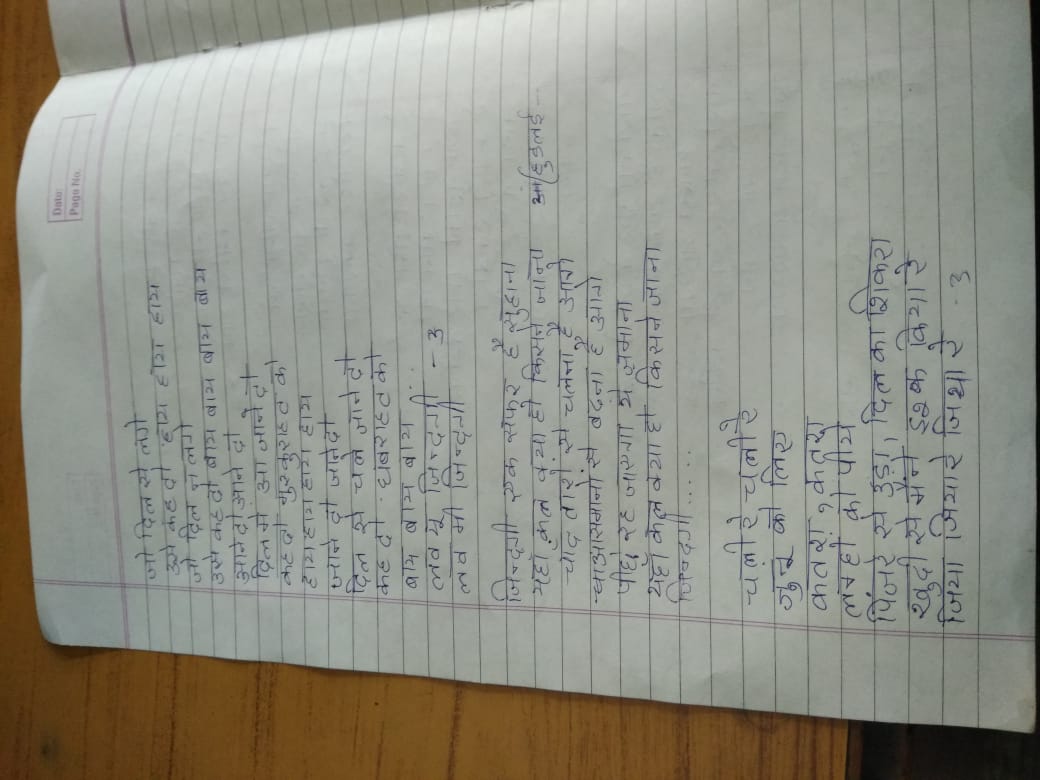 Date:
Page No.
जो दिल से लगे
उसे कहदो हाय हाय हाय
जो दिल न लगे
उसे कहदो बाय बाय बाय बाय
आने दो आने दो
दिल में आ जाने दो
कहदो मुस्कुराहट को
हाय हाय हाय हाय
जाने दो जाने दो
दिल से चले जाने दो
कह दो घबराहट को
बाय बाय बाय..
लव यू जिन्दगी - 3
लव मी जिन्दगी
जिन्दगी एक सफर है सुहाना
यहां कल क्या हो किसने जाना
चाँद तारों से चलना है आगे
आसमानों से बढ़ना है आगे
पीछे रह जाएगा ये जमाना
यहां कल क्या हो किसने जाना
जिन्दगी......
चली रे चली रे
जुनू को लिए
कतरा, कतरा
लम्हों को पीये
पिंजरे से उड़ा, दिल का शिकरा
खुदी से मैंने इश्क किया रे
जिया जिया रे जिया रे - 3